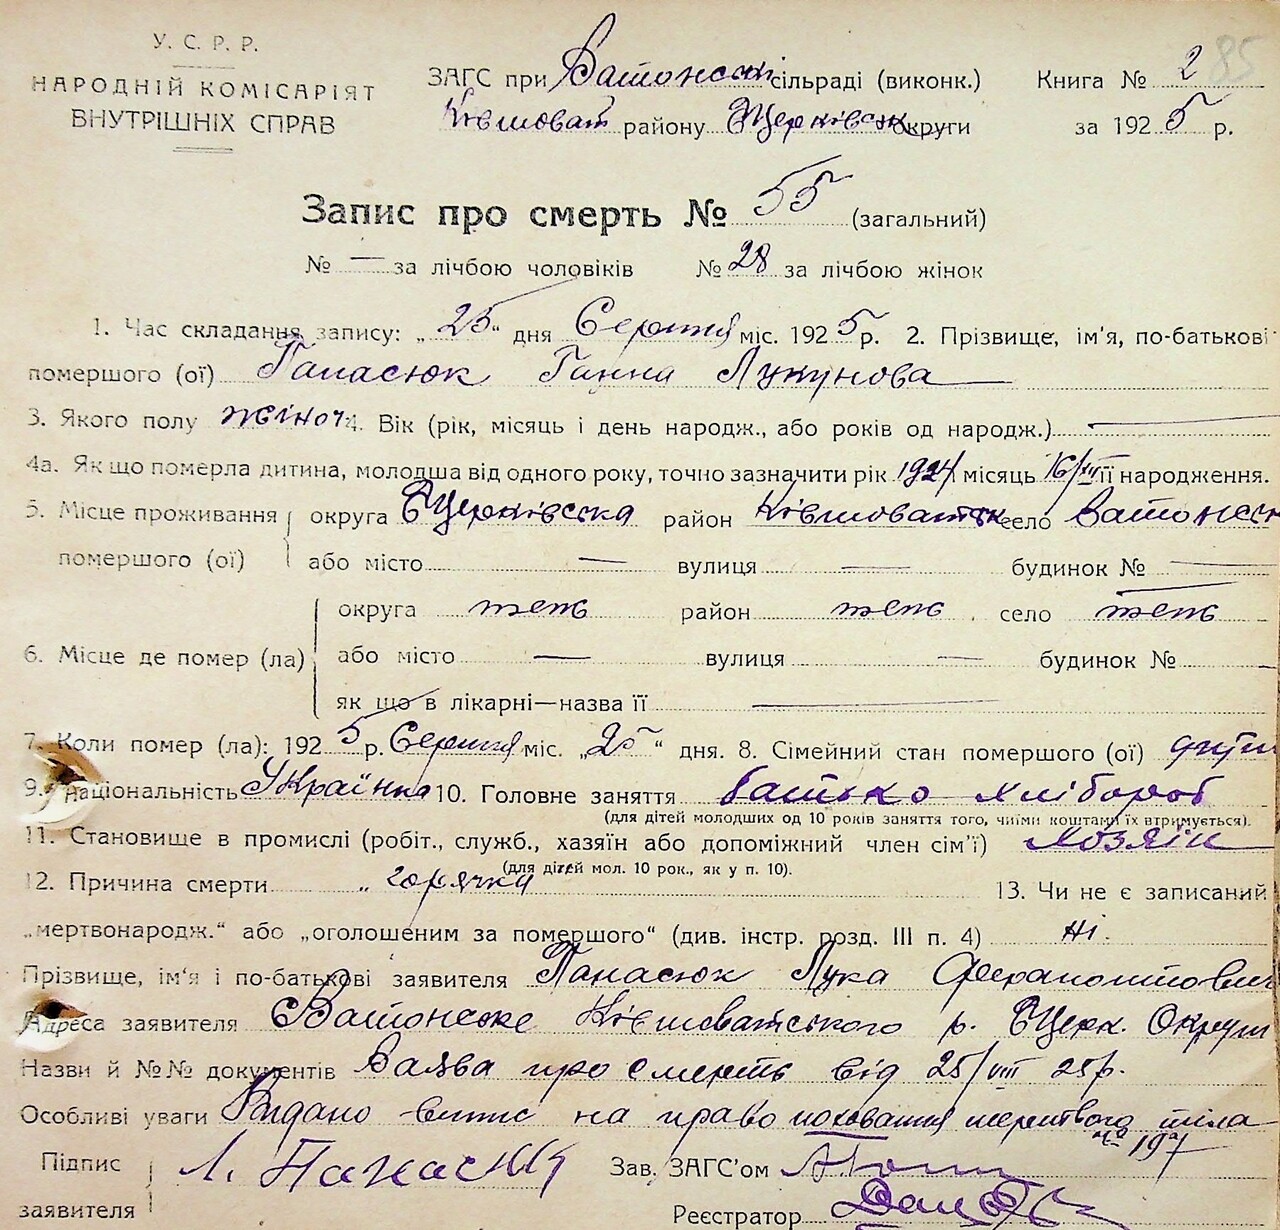 У. С. Р. Р.
НАРОДНІЙ КОМІСАРІЯТ
ВНУТРІШНІХ СПРАВ
ЗАГС при сільраді (виконк.)
Ківшоват району БЦерківськ округи
Книга № 2 85
за 1925 р.
Запис про смерть № 55 (загальний)
№ — за лічбою чоловіків № 28 за лічбою жінок
1. Час складання запису: „25“ дня Серпня міс. 1925 р. 2. Прізвище, ім'я, по-батькові
помершого (ої) Панасюк Ганна Лукунова
3. Якого полу жіноч 4. Вік (рік, місяць і день народж., або років од народж.) —
4а. Як що померла дитина, молодша від одного року, точно зазначити рік 1924 місяць 16/XII її народження.
5. Місце проживання помершого (ої)
округа БЦерківська район Ківшоватськ село
або місто — вулиця — будинок № —
6. Місце де помер (ла)
округа теж район теж село теж
або місто — вулиця — будинок №
як що в лікарні—назва її —
7. Коли помер (ла): 1925 р. Серпня міс. „25“ дня. 8. Сімейний стан помершого (ої)
9. Національність Українка 10. Головне заняття батько хлібороб
(для дітей молодших од 10 років заняття того, чиїми коштами їх втримується).
11. Становище в промислі (робіт., служб., хазяїн або допоміжний член сім'ї) хозяїн
(для дітей мол. 10 рок., як у п. 10).
12. Причина смерти „ горячка 13. Чи не є записаний
„мертвонародж.“ або „оголошеним за помершого“ (див. інстр. розд. III п. 4) ні.
Прізвище, ім'я і по-батькові заявителя Панасюк Лука Ферапонтович
Адреса заявителя Ківшоватського р. БЦерк. Округи
Назви й №№ документів Заява про смерть від 25/VIII 25 р.
Особливі уваги Видано витяг на право поховання мертвого тіла
№ 197
Підпис заявителя Л. Панасюк
Зав. ЗАГС'ом
Реєстратор